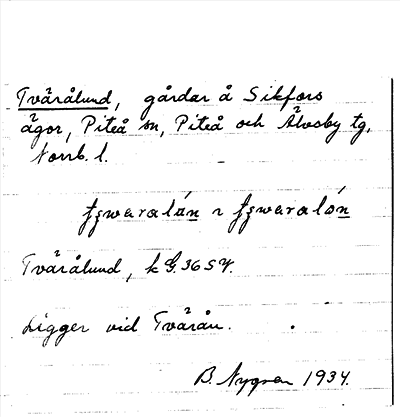 Tvärålund, gårdar å Sikfors
ägor, Piteå sn, Piteå och Älvsby tg,
Norrb. l.
Tvärålund, k G. 36 SV.
Ligger vid Tvärån.
B. Nygren 1934.